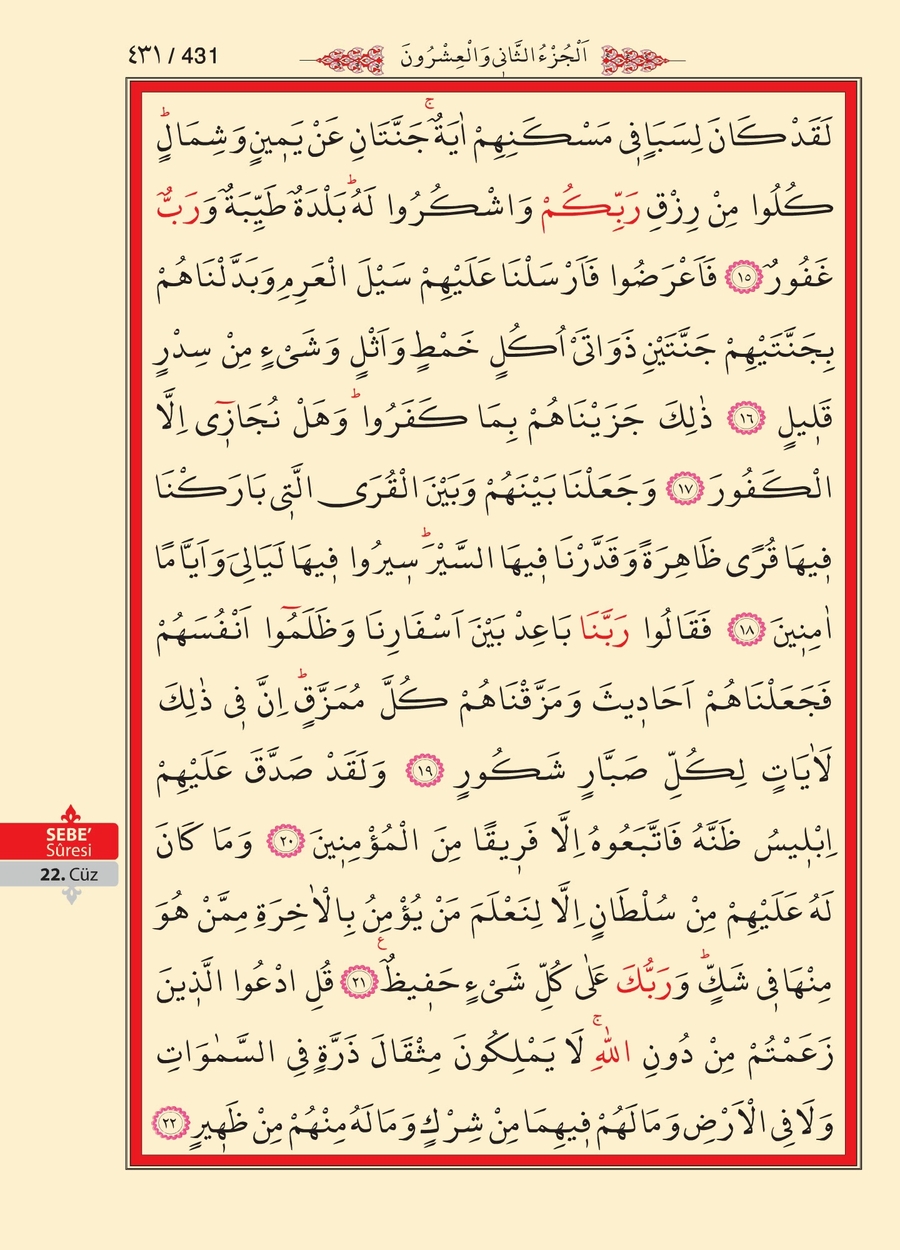 ٤٣١ / 431
اَلْجُزْءُ الثَّانِي وَالْعِشْرُونَ
لَقَدْ كَانَ لِسَبَاٍ فِي مَسْكَنِهِمْ اٰيَةٌۚ جَنَّتَانِ عَنْ يَمِينٍ وَشِمَالٍۜ
كُلُوا مِنْ رِزْقِ رَبِّكُمْ وَاشْكُرُوا لَهُۜ بَلْدَةٌ طَيِّبَةٌ وَرَبٌّ
غَفُورٌ ﴿١٥﴾ فَاَعْرَضُوا فَاَرْسَلْنَا عَلَيْهِمْ سَيْلَ الْعَرِمِ وَبَدَّلْنَاهُمْ
بِجَنَّتَيْهِمْ جَنَّتَيْنِ ذَوَاتَيْ اُكُلٍ خَمْطٍ وَاَثْلٍ وَشَيْءٍ مِنْ سِدْرٍ
قَلِيلٍ ﴿١٦﴾ ذٰلِكَ جَزَيْنَاهُمْ بِمَا كَفَرُواۜ وَهَلْ نُجَازِٓي اِلَّا
الْكَفُورَ ﴿١٧﴾ وَجَعَلْنَا بَيْنَهُمْ وَبَيْنَ الْقُرَى الَّتِي بَارَكْنَا
فِيهَا قُرًى ظَاهِرَةً وَقَدَّرْنَا فِيهَا السَّيْرَۜ سِيرُوا فِيهَا لَيَالِيَ وَاَيَّامًا
اٰمِنِينَ ﴿١٨﴾ فَقَالُوا رَبَّنَا بَاعِدْ بَيْنَ اَسْفَارِنَا وَظَلَمُٓوا اَنْفُسَهُمْ
فَجَعَلْنَاهُمْ اَحَادِيثَ وَمَزَّقْنَاهُمْ كُلَّ مُمَزَّقٍۜ اِنَّ فِي ذٰلِكَ
لَاٰيَاتٍ لِكُلِّ صَبَّارٍ شَكُورٍ ﴿١٩﴾ وَلَقَدْ صَدَّقَ عَلَيْهِمْ
اِبْلِيسُ ظَنَّهُ فَاتَّبَعُوهُ اِلَّا فَرِيقًا مِنَ الْمُؤْمِنِينَ ﴿٢٠﴾ وَمَا كَانَ
لَهُ عَلَيْهِمْ مِنْ سُلْطَانٍ اِلَّا لِنَعْلَمَ مَنْ يُؤْمِنُ بِالْاٰخِرَةِ مِمَّنْ هُوَ
مِنْهَا فِي شَكٍّۜ وَرَبُّكَ عَلٰى كُلِّ شَيْءٍ حَفِيظٌ ﴿٢١﴾ قُلِ ادْعُوا الَّذِينَ
زَعَمْتُمْ مِنْ دُونِ اللّٰهِۚ لَا يَمْلِكُونَ مِثْقَالَ ذَرَّةٍ فِي السَّمٰوَاتِ
وَلَا فِي الْاَرْضِ وَمَا لَهُمْ فِيهِمَا مِنْ شِرْكٍ وَمَا لَهُ مِنْهُمْ مِنْ ظَهِيرٍ ﴿٢٢﴾
SEBE’
Sûresi
22. Cüz